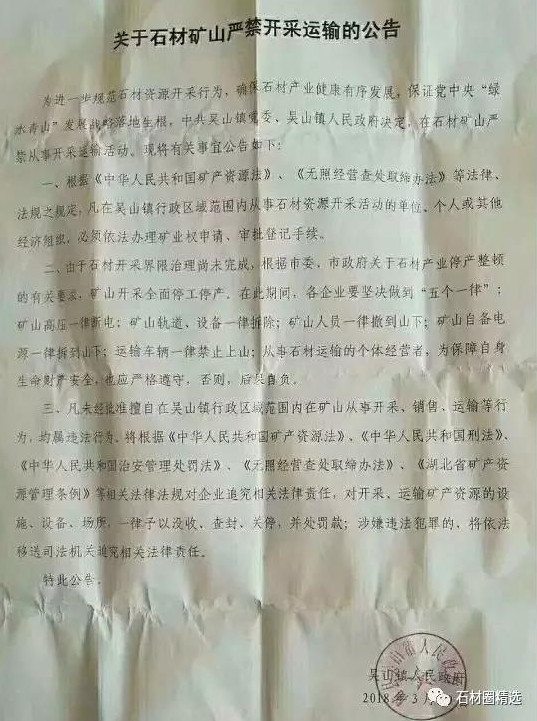 关于石材矿山严禁开采运输的公告
为进一步规范石材资源开采行为，确保石材产业健康有序发展，保证党中央“绿
水青山”发展战略落地生根，中共吴山镇党委、吴山镇人民政府决定，在石材矿山严
禁从事开采运输活动。现将有关事宜公告如下：
一、根据《中华人民共和国矿产资源法》、《无照经营查处取缔办法》等法律、
法规之规定，凡在吴山镇行政区域范围内从事石材资源开采活动的单位、个人或其他
经济组织，必须依法办理矿业权申请、审批登记手续。
二、由于石材开采界限治理尚未完成，根据市委，市政府关于石材产业停产整顿
的有关要求，矿山开采全面停工停产。在此期间，各企业要坚决做到“五个一律”：
矿山高压一律断电；矿山轨道、设备一律拆除；矿山人员一律撤到山下；矿山自备电
源一律拆到山下；运输车辆一律禁止上山；从事石材运输的个体经营者，为保障自身
生命财产安全，也应严格遵守，否则，后果自负。
三、凡未经批准擅自在吴山镇行政区域范围内在矿山从事开采、销售、运输等行
为，均属违法行为，将根据《中华人民共和国矿产资源法》、《中华人民共和国刑法》、
《中华人民共和国治安管理处罚法》、《无照经营查处取缔办法》、《湖北省矿产资
源管理条例》等相关法律法规对企业追究相关法律责任，对开采、运输矿产资源的设
施、设备、场所，一律予以没收、查封、关停，并处罚款；涉嫌违法犯罪的，将依法
移送司法机关追究相关法律责任。
特此公告。
吴山镇人民政府
2018年3月
石材圈精选